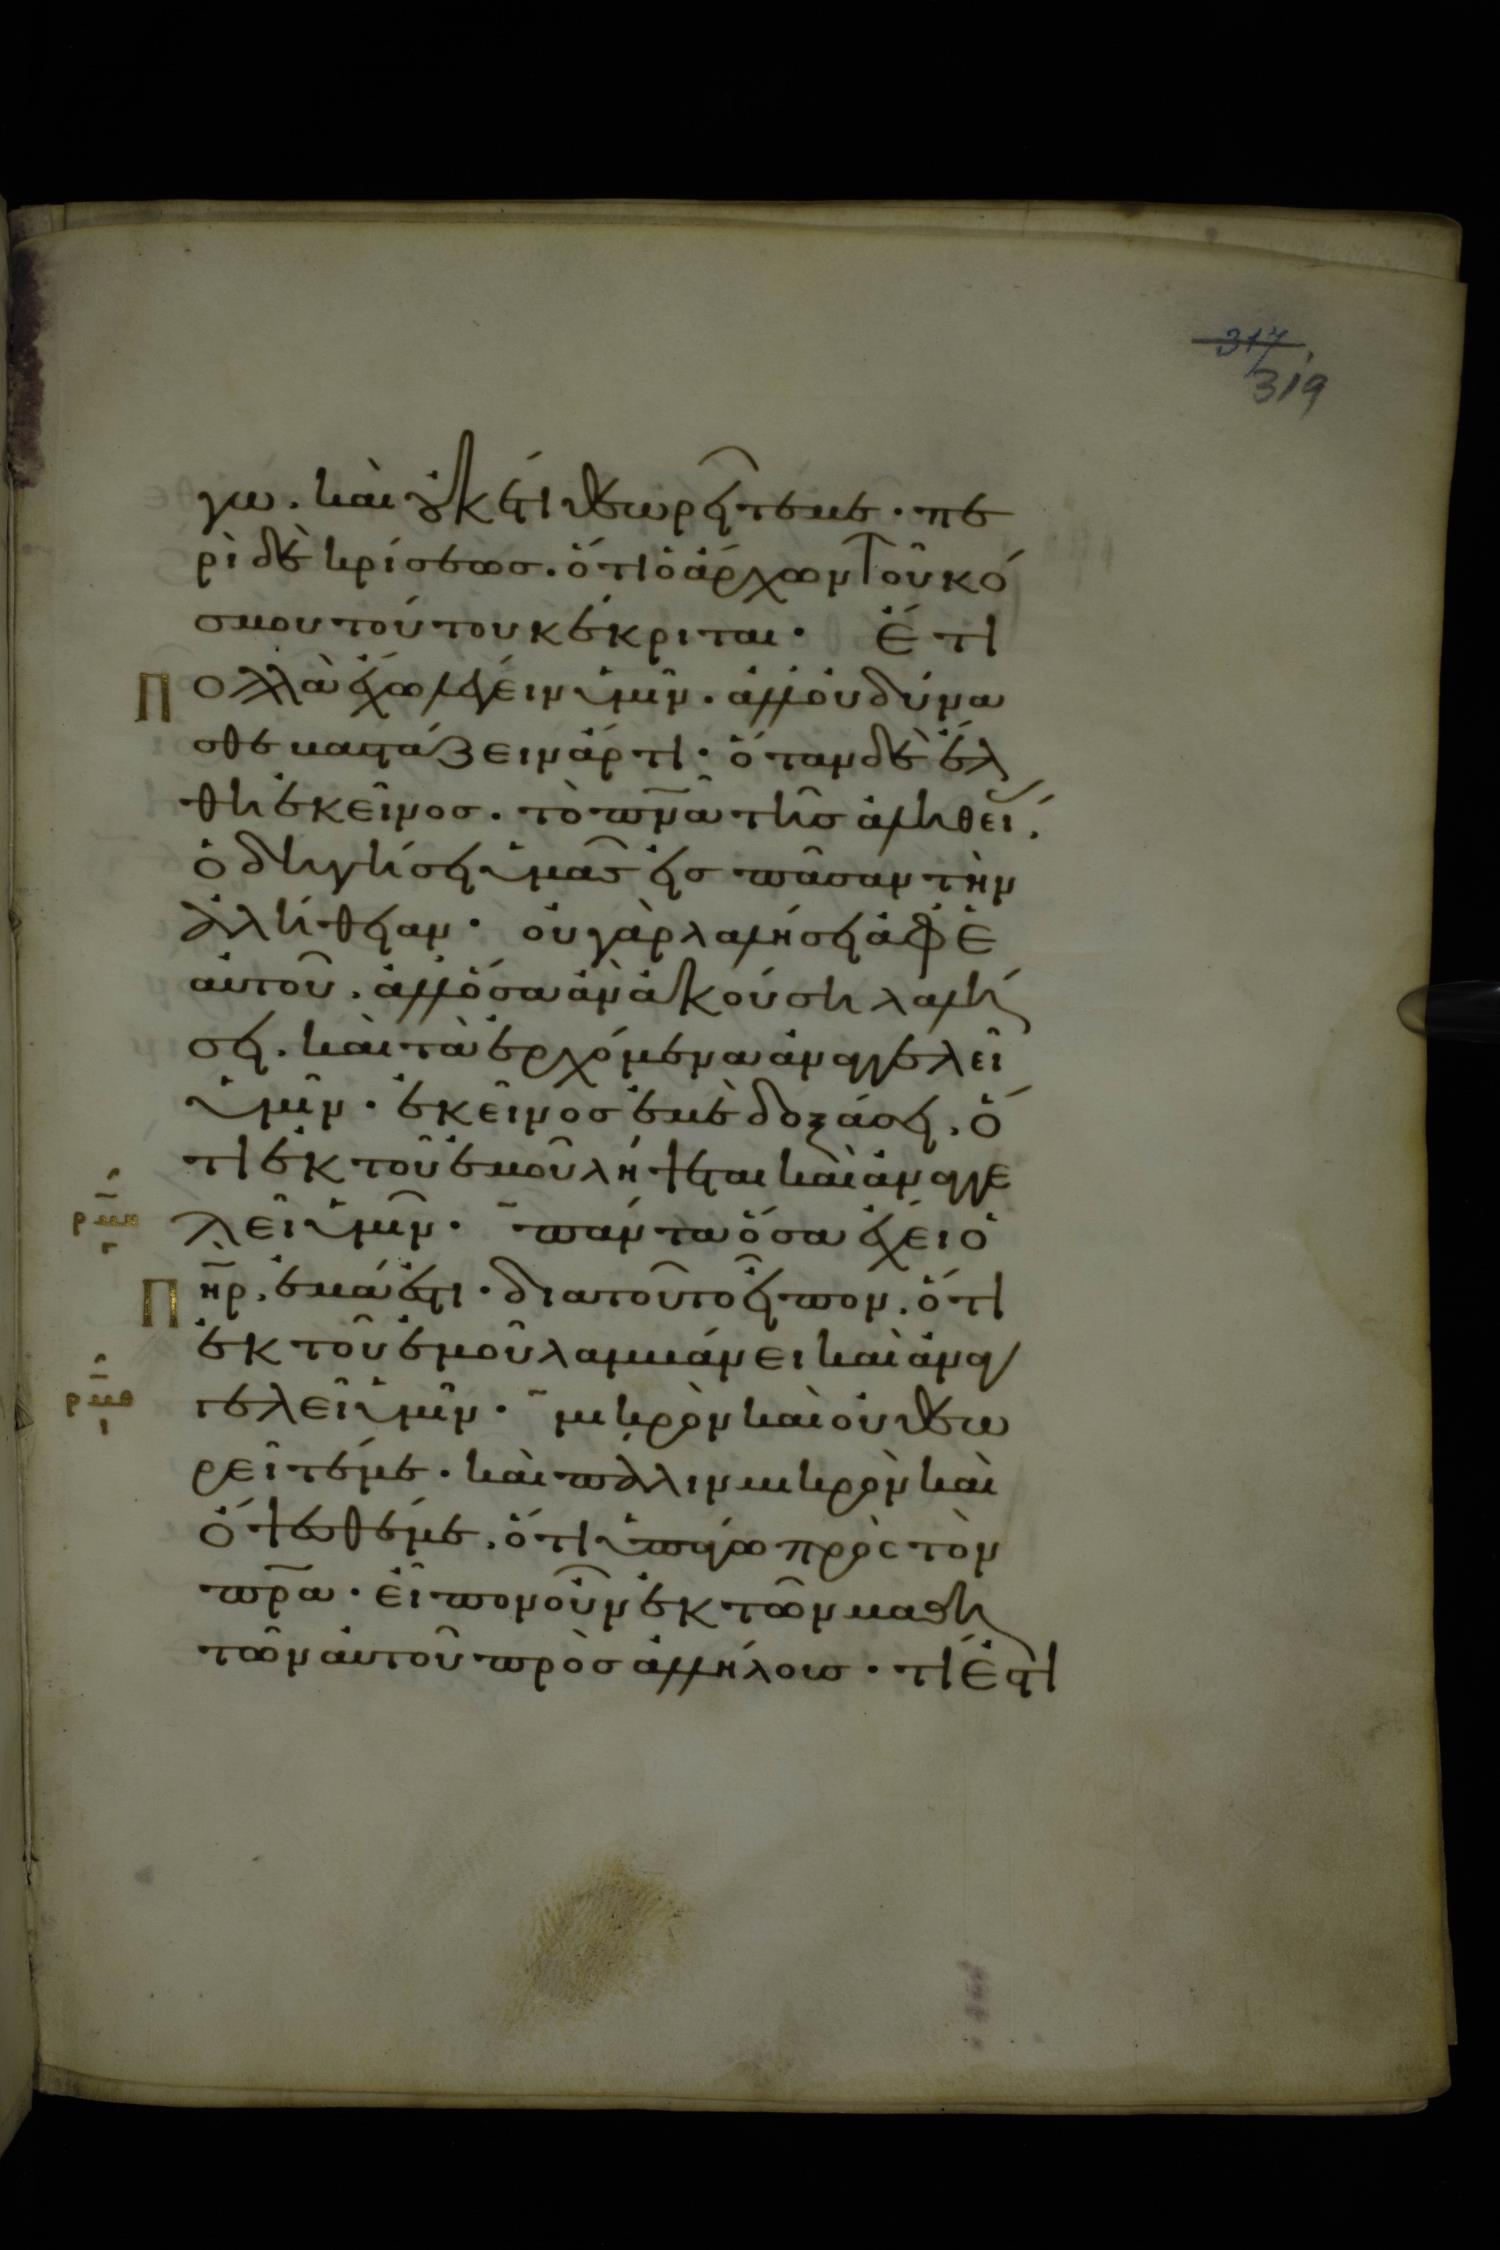 317
319
γω. καὶ οὐκέτι θεωρεῖτέ με. πε
ρὶ δὲ κρίσεως. ὅτι ὁ ἄρχων τοῦ κό
σμου τούτου κέκριται. Ἔτι
πολλὰ ἔχω λέγειν ὑμῖν. ἀλλ' οὐ δύνα
σθε βαστάζειν ἄρτι. ὅταν δὲ ἔλ
θη ἐκεῖνος. τὸ πνᾶ τῆς ἀληθεί.
ὁδηγήσει ὑμᾶς εἰς πᾶσαν τὴν
ἀλήθειαν. οὐ γὰρ λαλήσει ἀφ' ἑ
αυτοῦ. ἀλλ' ὅσα ἂν ἀκούση λαλή
σει. καὶ τὰ ἐρχόμενα ἀναγγελεῖ
ὑμῖν. ἐκεῖνος ἐμὲ δοξάσει. ὅ
τι ἐκ τοῦ ἐμοῦ λήψεται καὶ ἀναγγε
λεῖ ὑμῖν. πάντα ὅσα ἔχει ὁ
Πηρ. ἐμά ἐστι. διατοῦτο εἶπον. ὅτι
ἐκ τοῦ ἐμοῦ λαμβάνει καὶ ἀναγ
γελεῖ ὑμῖν. μικρὸν καὶ οὐ θεω
ρεῖτέ με. καὶ πάλιν μικρὸν καὶ
ὄψεσθέ με. ὅτι ὑπάγω πρὸς τὸν
πρα. εἶπον οὖν ἐκ τῶν μαθη
τῶν αὐτοῦ πρὸς ἀλλήλους. τί ἐστι
ρμη
ρμθ